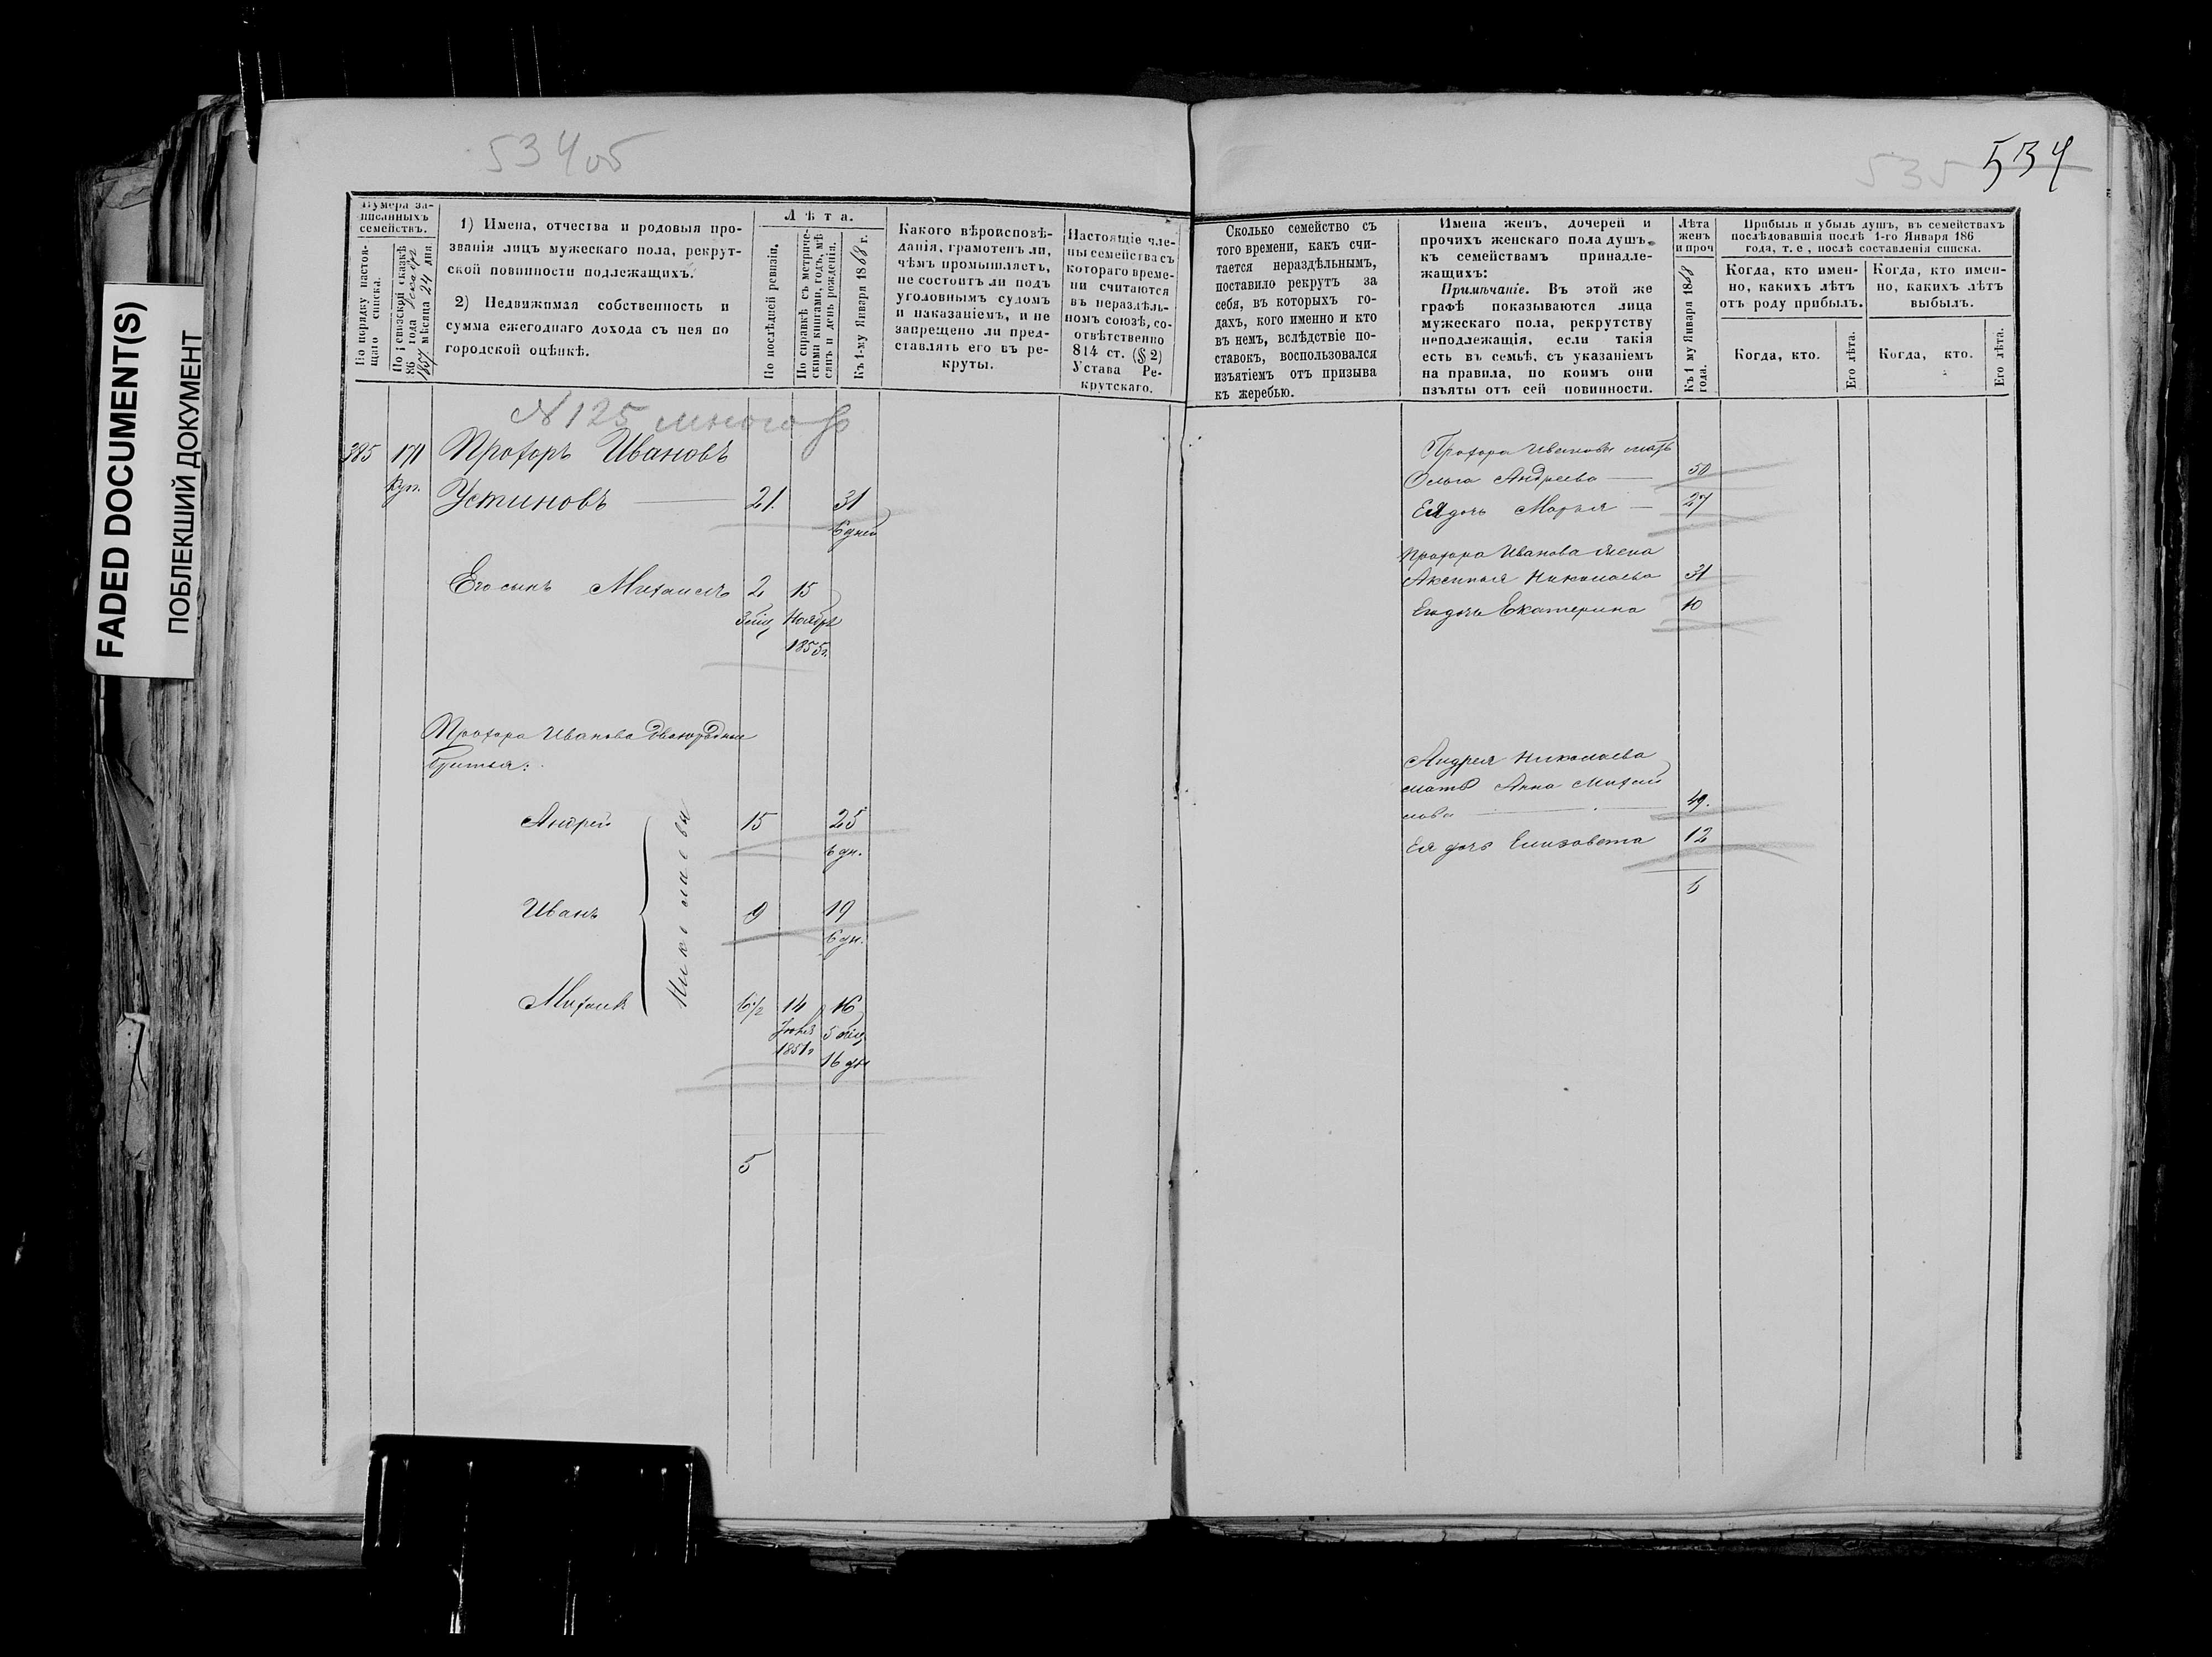 FADED DOCUMENT(S)
ПОБЛЕКШИЙ ДОКУМЕНТ
534об
535 534
Нумера за-
писанныхъ
семействъ.
По порядку настоя-
щаго списка.
По ревизской сказкѣ
86 года
1857 мѣсяца 24 дня
1) Имена, отчества и родовыя про-
званія лицъ мужескаго пола, рекрут-
ской повинности подлежащихъ.
2) Недвижимая собственность и
сумма ежегоднаго дохода съ нея по
городской оцѣнкѣ.
Лѣта.
По послѣдней ревизіи.
По справкѣ съ метриче-
скими книгами, годъ, мѣ-
сяцъ и день рожденія.
Къ 1-му Января 1868 г.
Какого вѣроисповѣ-
данія, грамотенъ ли,
чѣмъ промышляетъ,
не состоитъ ли подъ
уголовнымъ судомъ
и наказаніемъ, и не
запрещено ли пред-
ставлять его въ ре-
круты.
Настоящіе чле-
ны семейства съ
котораго време-
ни считаются
въ нераздѣль-
номъ союзѣ, со-
отвѣтственно
814 ст. (§ 2)
Устава Ре-
крутскаго.
Сколько семейство съ
того времени, какъ счи-
тается нераздѣльнымъ,
поставило рекрутъ за
себя, въ которыхъ го-
дахъ, кого именно и кто
въ немъ, вслѣдствіе по-
ставокъ, воспользовался
изъятіемъ отъ призыва
къ жеребью.
Имена женъ, дочерей и
прочихъ женскаго пола душъ,
къ семействамъ принадле-
жащихъ:
Примѣчаніе. Въ этой же
графѣ показываются лица
мужескаго пола, рекрутству
неподлежащія, если такія
есть въ семьѣ, съ указаніемъ
на правила, по коимъ они
изъяты отъ сей повинности.
Лѣта
женъ
и проч
Къ 1 му Января 1868
года.
Прибыль и убыль душъ, въ семействахъ
послѣдовавшія послѣ 1-го Января 186
года, т. е., послѣ составленія списка.
Когда, кто имен-
но, какихъ лѣтъ
отъ роду прибылъ.
Когда, кто имен-
но, какихъ лѣтъ
выбылъ.
Когда, кто.
Его лѣта.
Когда, кто.
Его лѣта.
N 125
385 171 Прохоръ Ивановъ
Куп. Устиновъ 21. 31
6 дней
Его сынъ Михаилъ 2 15
Ноября
1855г.
Прохора Иванова двоюродные
братья:
Андрей 15 25
6 дн.
Иванъ 9 19
6 дн.
Николаевы
Михаилъ 6½ 14 16
Іюня 5 мѣс
1851г 16 дн
5
Прохора Иванова мать
Ольга Андреева 50
Ея дочь Марья 27
Прохора Иванова жена
Аксинья Николаева 31
Его дочь Екатерина 10
Андрея Николаева
мать Анна Михай
лова 49.
Ея дочь Елизавета 12
6